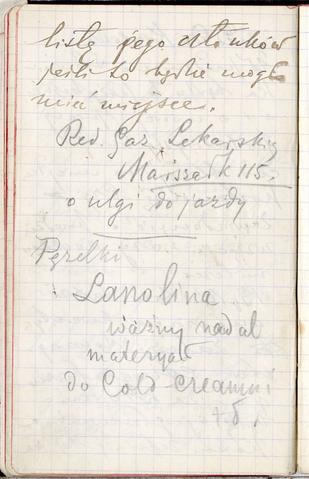 listę jego członków
jeśli to będzie mogło
mieć miejsce.
Red. Gaz. Lekarskiej
Marszałk 115.
o ulgi do jazdy
Pęzelki
Lanolina
ważny nadal
materyał
do Cold-creamu